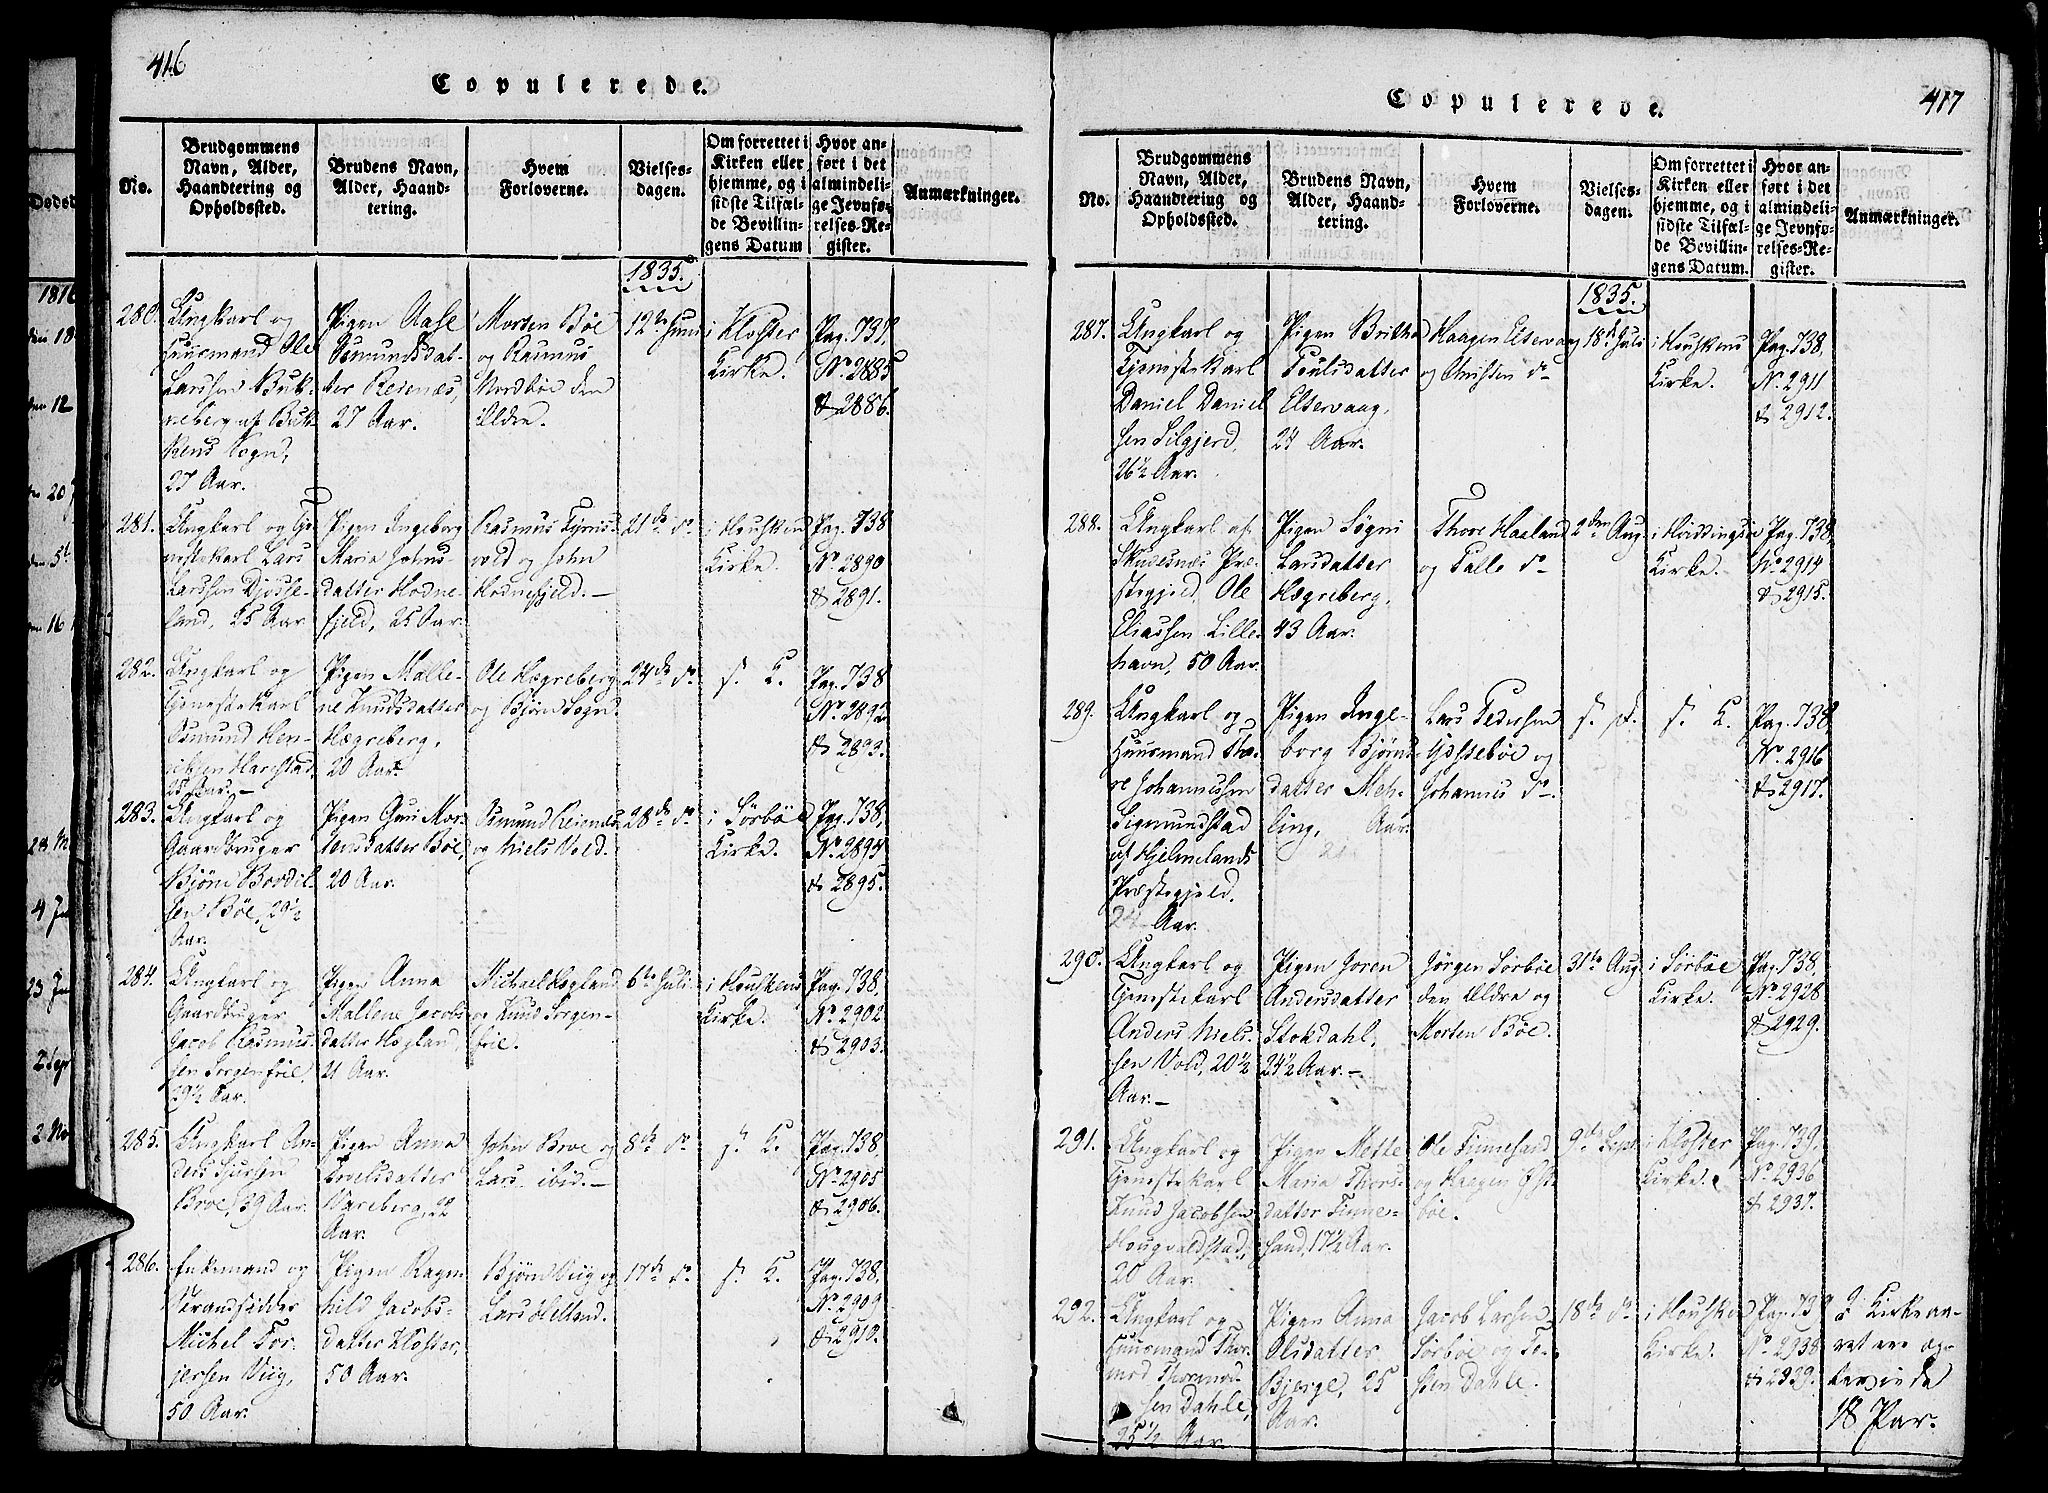 416
Copulerede.
No.
Brudgommens
Navn, Alder,
Haandtering og
Opholdssted.
Brudens Navn,
Alder, Haand-
tering.
Hvem
Forloverne.
Vielses-
dagen.
Om forrettet i
Kirken eller
hjemme, og i
sidste Tilfæl-
de Bevillin-
gens Datum
Hvor an-
ført i det
almindeli-
ge Jevnfø-
relses-Re-
gister.
Anmærkninger.
1835.
280.
Ungkarl og
Huusmand Ole
Larssen Buk-
neberg af Buk-
kens Sogn,
27 Aar.
Pigen Aase
Osmundsdat-
ter Reienæs,
27 Aar.
Morten Bøe
og Rasmus
Nordbøe den
Ældre.
12te Juni
i Kloster
Kirke.
Pag. 737,
No. 2885
& 2886.
281.
Ungkarl og Tje-
nestekarl Lars
Larssen
land, 25 Aar
Pigen Ingeborg
Maria Johns-
datter Hodne-
fjeld, 25 Aar.
Rasmus
vold og John
Hodnefjeld.
21de do
i Houskens
Kirke.
Pag. 738
No. 2890
& 2891.
282.
Ungkarl og
Tjenestekarl
Osmund Hen-
riksen Harestad,
25 Aar.
Pigen Malle-
ne Knudsdatter
Hægreberg,
20 Aar.
Ole Hægreberg
og Bjørn Sogn.
24de do
s. K.
Pag. 738
No. 2892
& 2893.
283.
Ungkarl og
Gaardbruger
Bjørn Bordil-
sen Bøe, 29½
Aar.
Pigen Guri Mor-
tensdatter Bøe,
20 Aar.
Osmund Reienæs
og Niels Vold.
28de do
i Sørbøe
Kirke.
Pag. 738,
No. 2894
& 2895.
284.
Ungkarl og
Gaardbruger
Jacob Rasmus-
sen Sorgenfrie,
29½ Aar.
Pigen Anna
Mallene Jacobs-
datter Hogland,
21 Aar.
Michael Hogland
og Knud Sorgen-
frie.
6te Juli
i Houskens
Kirke.
Pag. 738,
No. 2902
& 2903.
285.
Ungkarl An-
ders Sjursen
Broe, 39 Aar.
Pigen Anna
Vareberg, 22
Aar.
John Broe og
Lars ibid.
8de do
s. K.
Pag. 738,
No. 2905
& 2906.
286.
Enkemand og
Strandsidder
Michel Tor-
jersen Viig,
50 Aar.
Pigen Ragn-
hild Jacobs-
datter Kloster,
50 Aar.
Bjørn Viig og
Lars Helland.
17de do
s. K.
Pag. 738,
No. 2909
& 2910.
417
Copulerede.
No.
Brudgommens
Navn, Alder,
Haandtering og
Opholdssted.
Brudens Navn,
Alder, Haand-
tering.
Hvem
Forloverne.
Vielses-
dagen.
Om forrettet i
Kirken eller
hjemme, og i
sidste Tilfæl-
de Bevillin-
gens Datum.
Hvor an-
ført i det
almindeli-
ge Jevnfø-
relses-Re-
gister.
Anmærkninger.
1835.
287.
Ungkarl og
Tjenestekarl
Daniel Daniel-
sen Selgjerd,
26½ Aar.
Pigen Britha
Poulsdatter
Eltervaag,
24 Aar.
Haagen Eltervaag
og Christen do
18de Juli
i Houskens
Kirke.
Pag. 738,
No. 2911
& 2912.
288.
Ungkarl af
Skudesnæs Præ-
stegjeld, Ole
Eliassen Lille-
havn, 50 Aar.
Pigen Søgni
Larsdatter
Hægreberg,
43 Aar.
Thore Haaland
og Palle do
2den Aug.
i Hvidingsøe
Kirke.
Pag. 738,
No. 2914
& 2915.
289.
Ungkarl og
Huusmand Tho-
re Johannessen
Sigmundstad
af Hjelmelands
Præstegjeld,
24 Aar.
Pigen Inge-
borg Bjørns-
datter Meh-
ling, Aar.
24
Lars Pedersen
Gjessebøe og
Johannes do
s. K.
Pag. 738,
No. 2916
& 2917.
290.
Ungkarl og
Tjenestekarl
Anders Niels-
sen Vold, 20½
Aar.
Pigen Joren
Andersdatter
Stokdahl,
24½ Aar.
Jørgen Sørbøe
den Ældre og
Morten Bøe.
31te Aug.
i Sørbøe
Kirke.
Pag. 738,
No. 2928
& 2929.
291.
Ungkarl og
Tjenestekarl
Knud Jacobsen
Hougvaldstad,
20 Aar.
Pigen Mette
Maria Thors-
datter Finne-
sand, 17½ Aar.
Ole Finnesand
og Haagen Øst-
bøe.
9de Sept.
i Kloster
Kirke.
Pag. 739,
No. 2936
& 2937.
292.
Ungkarl og
Huusmand Thor-
mod Thormod-
sen Dahle,
25½ Aar.
Pigen Anna
Olsdatter
Bjerge, 25
Aar.
Jacob Larsen
Sørbøe og To-
sten Dahle.
18de do
i Housken
Kirke.
Pag. 739
No. 2938
& 2939.
I Kirkeaa-
ret ere og-
18 Par.